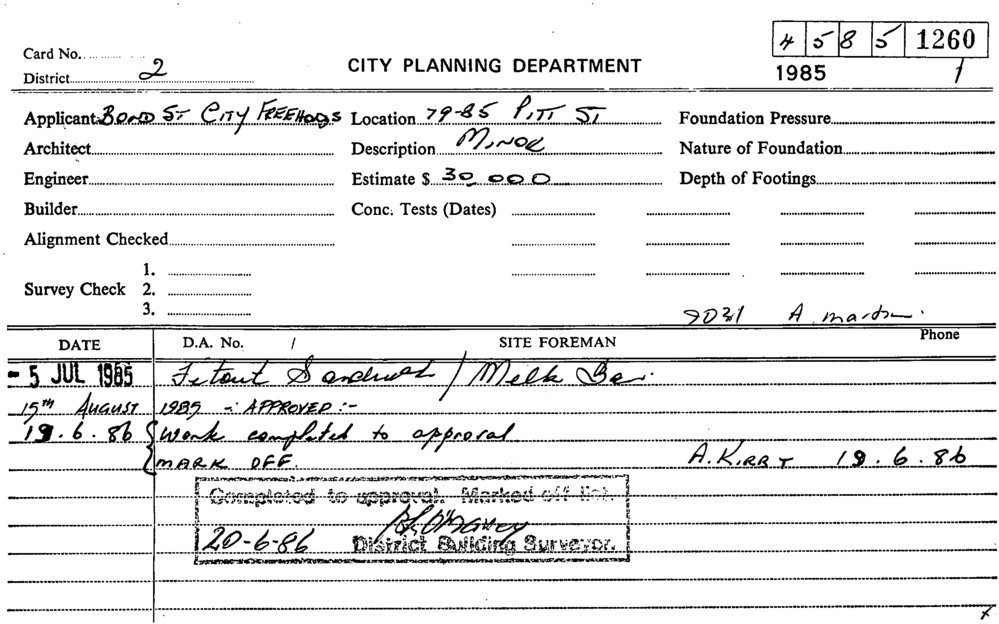 4 5 8 5 1260
Card No.
District 2
CITY PLANNING DEPARTMENT
1985 1
Applicant BOND ST CITY FREEHOLDS Location 79-85 PITT ST Foundation Pressure
Architect Description MINOR Nature of Foundation
Engineer Estimate $ 30,000 Depth of Footings
Builder Conc. Tests (Dates)
Alignment Checked
1.
Survey Check 2.
3.
A. Martin
DATE D.A. No. / SITE FOREMAN Phone
- 5 JUL 1985 Fitout Sandwich / Milk Bar.
15TH AUGUST 1985 -: APPROVED :-
19.6.86 Work completed to approval
MARK OFF. A. KIRBY 19.6.86
Completed to approval. Marked off list.
20-6-86 District Building Surveyor.